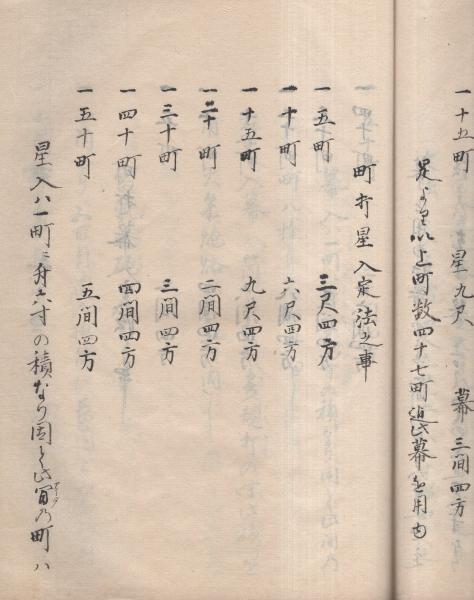 一 十五町 星 九尺 幕 三間四方
足ゟ以上町数四十七町迄此幕を用由
一 町打星入定法之事
一 五町 三尺四方
一 十町 六尺四方
一 十五町 九尺四方
一 二十町 二間四方
一 三十町 三間四方
一 四十町 四間四方
一 五十町 五間四方
星入ハ一町ニ付六寸の積なり因て此間の町ハ